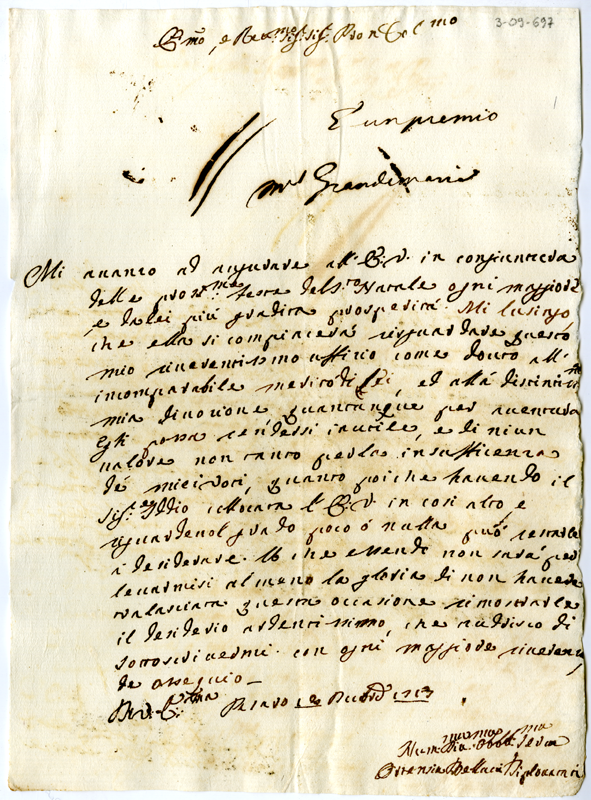 3-09-697
Em̃o, e Re.mo Sig.r Sig.r Pron Col.mo
E un premio
m.r Grandemaria
Mi avanzo ad augurare all'E.V. in congiuntura
delle pros.me feste del S.to Natale ogni maggiore
e da lei più gradita prosperità. Mi lusingo
che ella si compiacerà risguardare questo
mio riverentissimo uffizio come dovuto all'
incomparabile merito di Lei, ed alla distintis.ma
mia divozione quantunque per aventura
Egli possa rendersi inutile, e di niun
valore non tanto per la insufficenza
de' miei voti, quanto poi che havendo il
Sig.re Iddio collocata l'E.V. in così alto, e
riguardevol grado poco ò nulla può restarle
à desiderare. Il che essendo non sarà per
levarmisi almeno la gloria di non havere
tralasciata questa occasione rimostrarle
il desiderio ardentissimo, che nudrisco di
sottoscrivermi con ogni maggiore riverenza,
de ossequio
Di V. E.ma Pesaro Decemb 1713
Hum.ma Dia.ma Obb.ma Serva
Ortensia